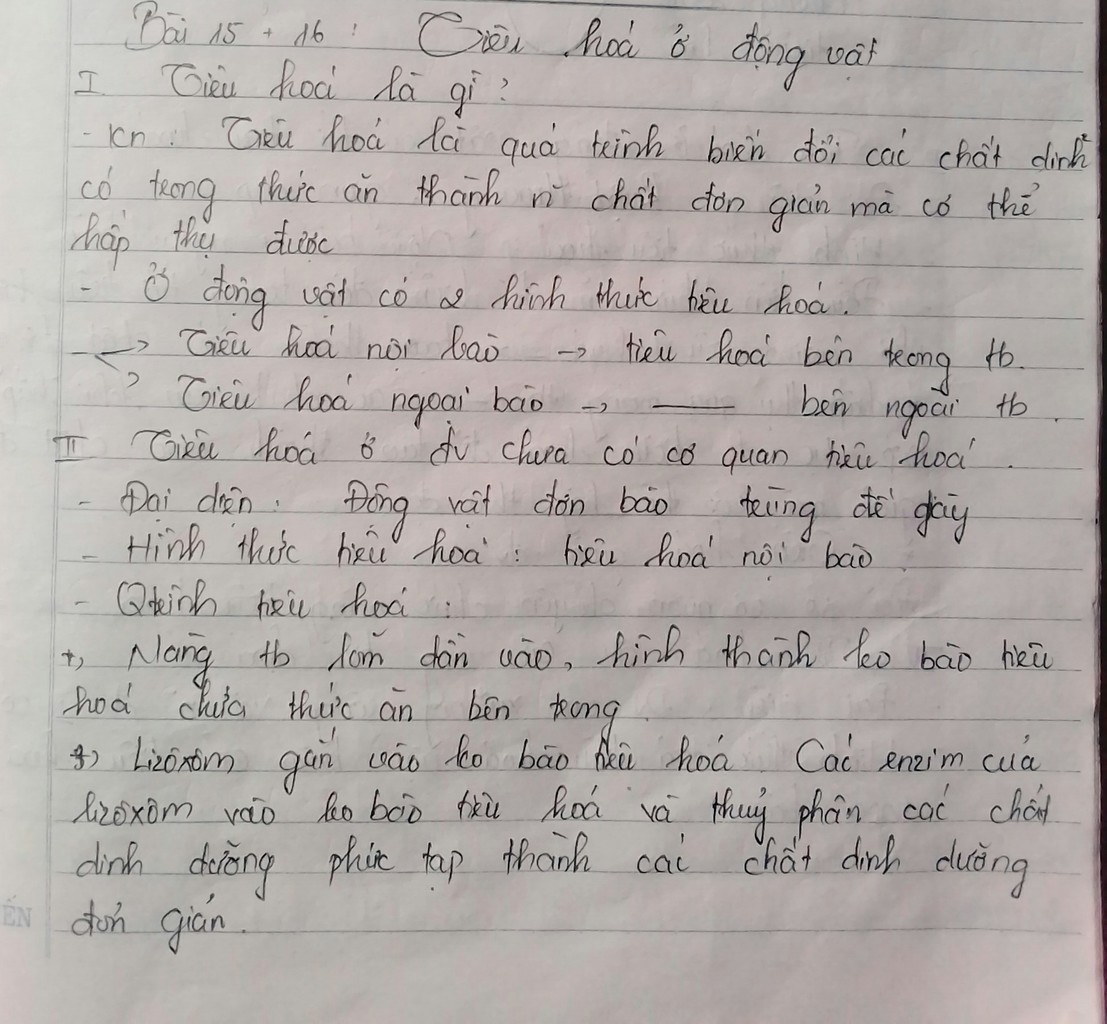 Bài 15 + 16 : Tiêu hoá ở động vật
I Tiêu hoá là gì ?
- Kn : Tiêu hoá là quá trình biến đổi các chất dinh²
có trong thức ăn thành n~ chất đơn giản mà có thể
hấp thụ được
- Ở động vật có 2 hình thức tiêu hoá .
→ Tiêu hoá nội bào → tiêu hoá bên trong tb .
→ Tiêu hoá ngoại bào → —— bên ngoài tb .
II Tiêu hoá ở đv chưa có cơ quan tiêu hoá .
- Đại diện : Động vật đơn bào trùng đế giày
- Hình thức tiêu hoá : tiêu hoá nội bào .
- Qtrình tiêu hoá :
+, Màng tb lõm dần vào, hình thành ko bào tiêu
hoá chứa thức ăn bên trong .
+) Lizôxôm gắn vào ko bào tiêu hoá . Các enzim của
lizôxôm vào ko bào tiêu hoá và thuỷ phân các chất
dinh dưỡng phức tạp thành các chất dinh dưỡng
đơn giản .
ẾN